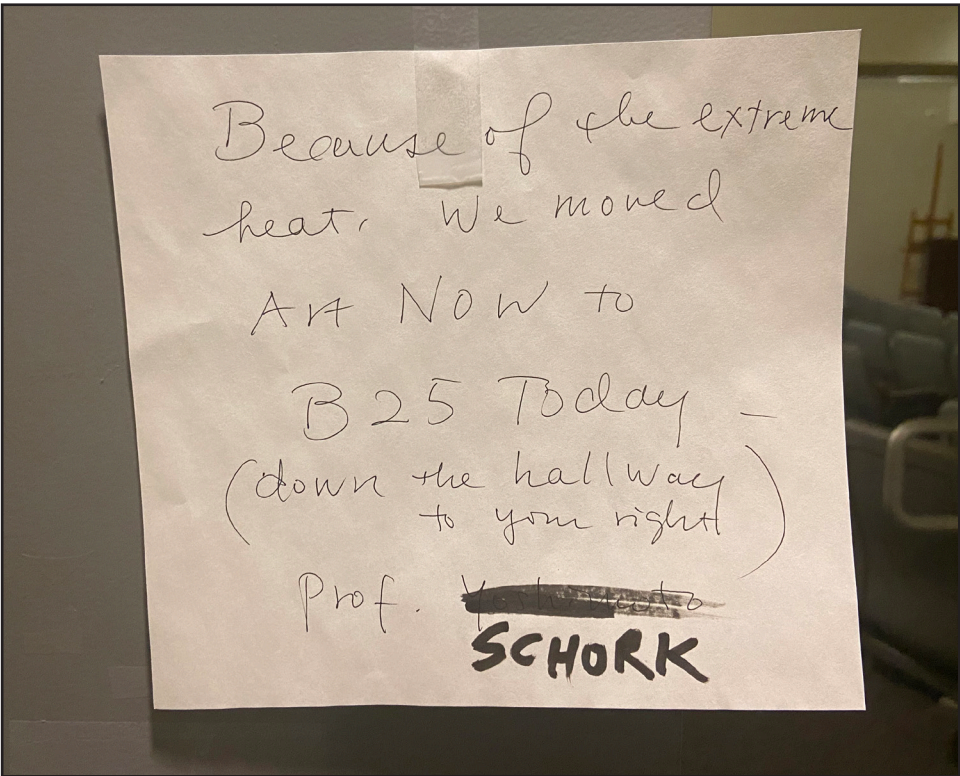 Because of the extreme
heat, We moved
Art NOW to
B25 Today –
(down the hallway
to your right)
Prof.
SCHORK